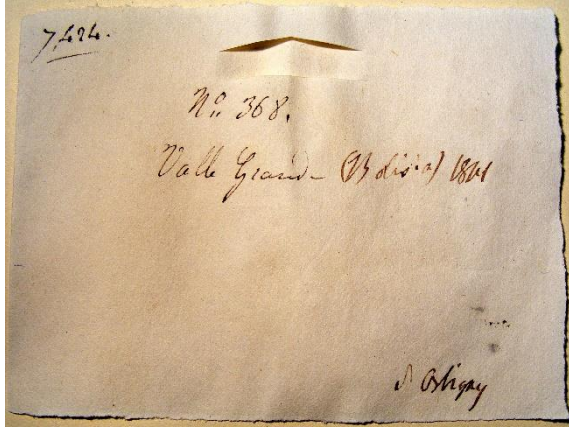 7,424.
Nº 368.
Valle Grande (Bolivia)
d'Orbigny